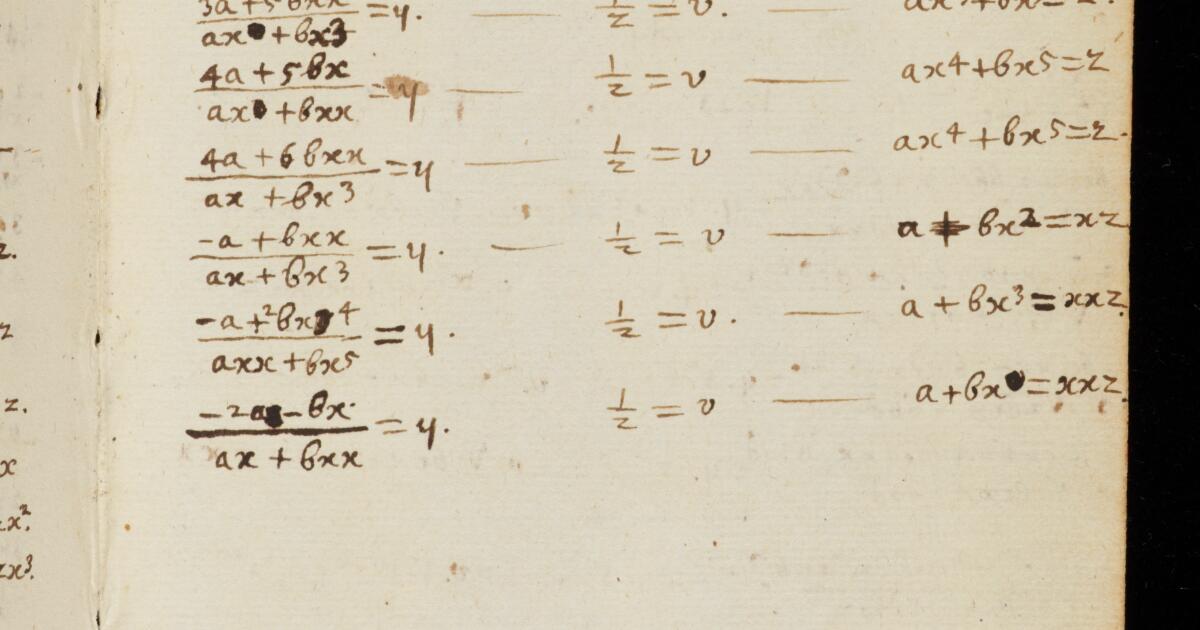 3a+5bxx / ax +bx3 =y. —— 1/z =v. ——
4a+5bx / ax +bxx =y —— 1/z =v —— ax4+bx5=z
4a+6bxx / ax +bx3 =y —— 1/z =v —— ax4+bx5=z.
-a+bxx / ax+bx3 =y. —— 1/z =v —— a + bx2=xz
-a+2bx 4 / axx+bx5 =y. —— 1/z =v. —— a+bx3=xxz.
-2a-bx. / ax+bxx =y. —— 1/z =v —— a+bx =xxz.
z.
z
z.
x
x2.
zx3.